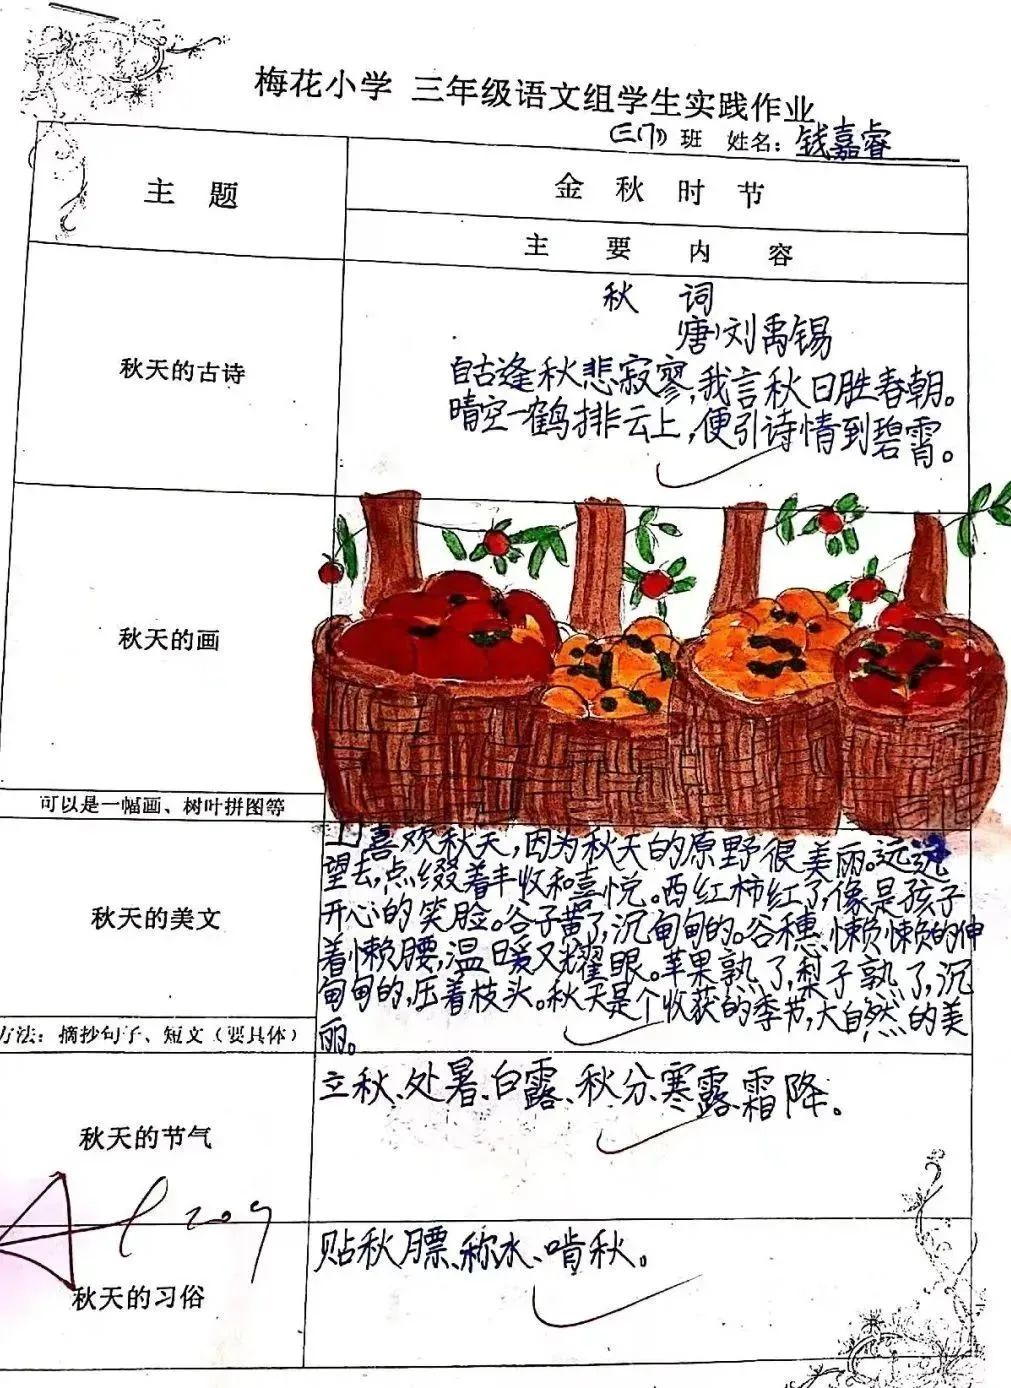 梅花小学 三年级语文组学生实践作业
(三(7))班 姓名：钱嘉睿
主 题
金 秋 时 节
主 要 内 容
秋天的古诗
秋 词
(唐)刘禹锡
自古逢秋悲寂寥,我言秋日胜春朝。
晴空一鹤排云上,便引诗情到碧霄。
秋天的画
可以是一幅画、树叶拼图等
秋天的美文
喜欢秋天,因为秋天的原野很美丽。远远
望去,点缀着丰收和喜悦。西红柿红了,像是孩子
开心的笑脸。谷子黄了,沉甸甸的。谷穗懒懒的伸
着懒腰,温暖又耀眼。苹果熟了,梨子熟了,沉
甸甸的,压着枝头。秋天是个收获的季节,大自然的美
丽。
方法：摘抄句子、短文（要具体）
秋天的节气
立秋、处暑、白露、秋分、寒露、霜降。
秋天的习俗
贴秋膘、称水、啃秋。